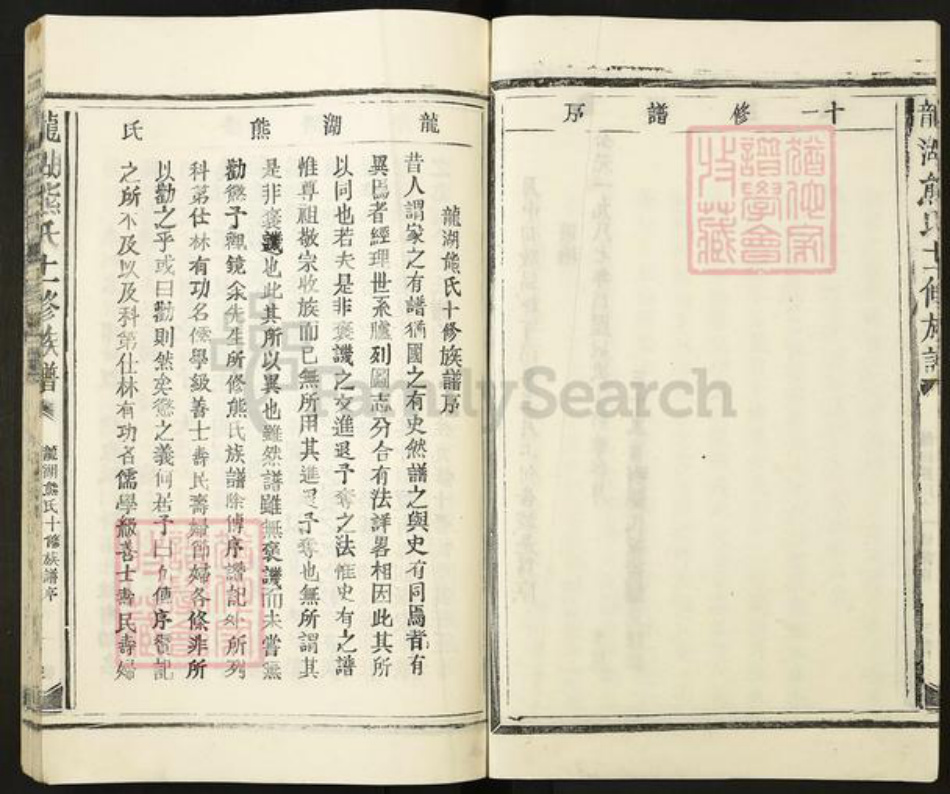 龍湖熊氏十一修族譜
十一修譜序
猶他家譜學會收藏
龍湖熊氏
龍湖熊氏十修族譜序
昔人謂家之有譜猶國之有史然譜之與史有同焉者有
異焉者經理世系臚列圖志分合有法詳畧相因此其所
以同也若夫是非褒譏之文進退予奪之法惟史有之譜
惟尊祖敬宗收族而已無所用其進退予奪也無所謂其
是非褒譏也此其所以異也雖然譜雖無褒譏而未嘗無
勸懲予觀鏡余先生所修熊氏族譜除傳序譜記外所列
科第仕林有功名儒學級善士壽民壽婦節婦各條非所
以勸之乎或曰勸則然矣懲之義何居予曰傳序譜記
之所不及以及科第仕林有功名儒學級善士壽民壽婦
猶他家譜學會收藏
龍湖熊氏十一修族譜
龍湖熊氏十修族譜序
FamilySearch